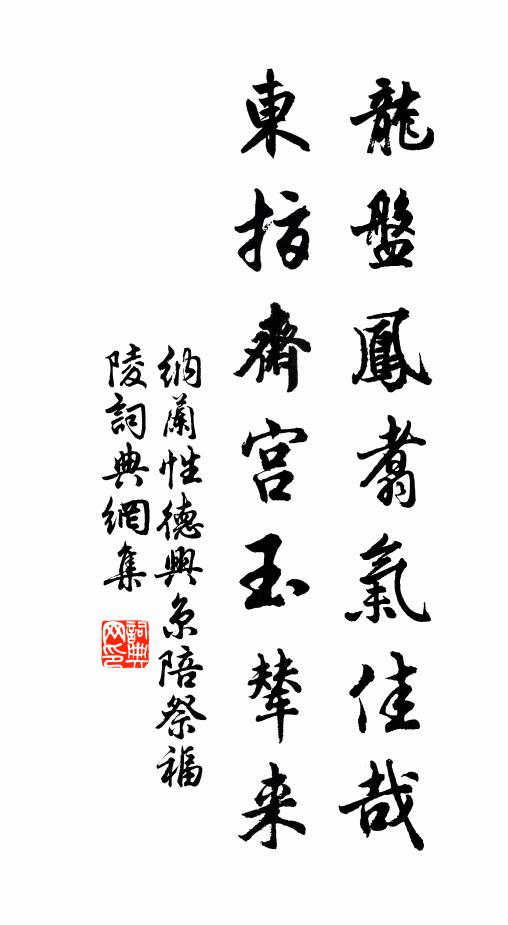 龍盤鳳翥氣佳哉
東指齋宮玉輦来
納蘭性德興京陪祭福
陵詞典網集
詞典網印